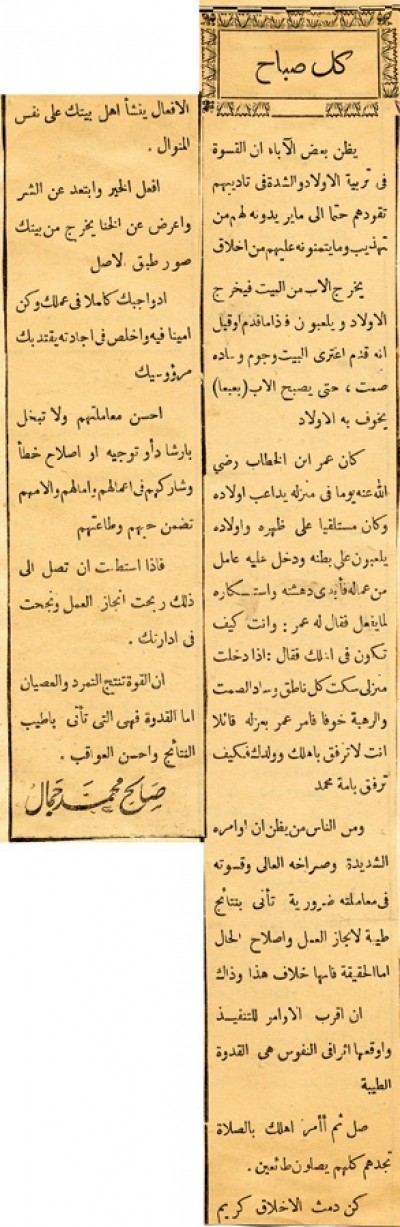 كل صباح
يظن بعض الآباء ان القسوة
فى تربية الاولاد والشدة فى تاديبهم
تقودهم حتما الى ما يريدونه لهم من
تهذيب وما يتمنونه عليهم من اخلاق
يخرج الاب من البيت فيخرج
الاولاد و يلعبون فاذا ما قدم او قيل
انه قدم اعترى البيت وجوم وساده
صمت ، حتى يصبح الاب (بعبعا)
يخوف به الاولاد
كان عمر ابن الخطاب رضي
الله عنه يوما فى منزله يداعب اولاده
وكان مستلقيا على ظهره واولاده
يلعبون على بطنه ودخل عليه عامل
من عماله فأبدى دهشته واستنكاره
لما يفعل فقال له عمر : وانت كيف
تكون فى اهلك فقال : اذا دخلت
منزلى سكت كل ناطق وساد الصمت
والرهبة خوفا فامر عمر بعزله قائلا
انت لا ترفق باهلك وولدك فكيف
ترفق بامة محمد
ومن الناس من يظن ان اوامره
الشديدة وصراخه العالى وقسوته
فى معاملته ضرورية تأتى بنتائج
طيبة لانجاز العمل واصلاح الحال
اما الحقيقة فانها خلاف هذا وذاك
ان اقرب الاوامر للتنفيذ
واوقعها اثرا فى النفوس هى القدوة
الطيبة
صل ثم أأمر اهلك بالصلاة
تجدهم كلهم يصلون طائعين .
كن دمث الاخلاق كريم
الافعال ينشأ اهل بيتك على نفس
المنوال .
افعل الخير وابتعد عن الشر
واعرض عن الخنا يخرج من بيتك
صور طبق الاصل
اد واجبك كاملا فى عملك وكن
امينا فيه واخلص فى اجادته يقتد بك
مرؤوسيك
احسن معاملتهم ولا تبخل
بارشاد أو توجيه او اصلاح خطأ
وشاركهم فى اعمالهم وامالهم والامهم
تضمن حبهم وطاعتهم
فاذا استطعت ان تصل الى
ذلك ربحت انجاز العمل ونجحت
فى ادارتك .
ان القوة تنتج التمرد والعصيان
اما القدوة فهى التى تأتى باطيب
النتائج واحسن العواقب .
صالح محمد جمال